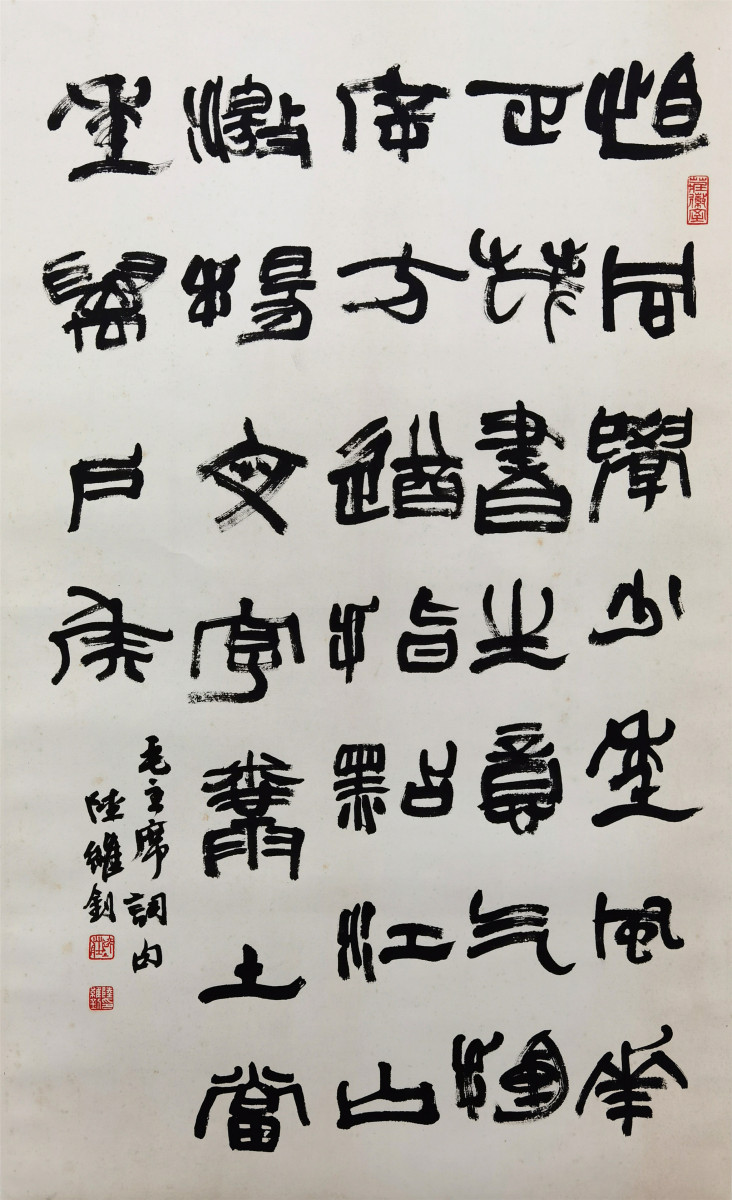 恰同學少年風華
正茂書生意气揮
斥方遒指點江山
激揚文字糞土當
年萬戶侯
毛主席詞句
陸維釗
莊徽室